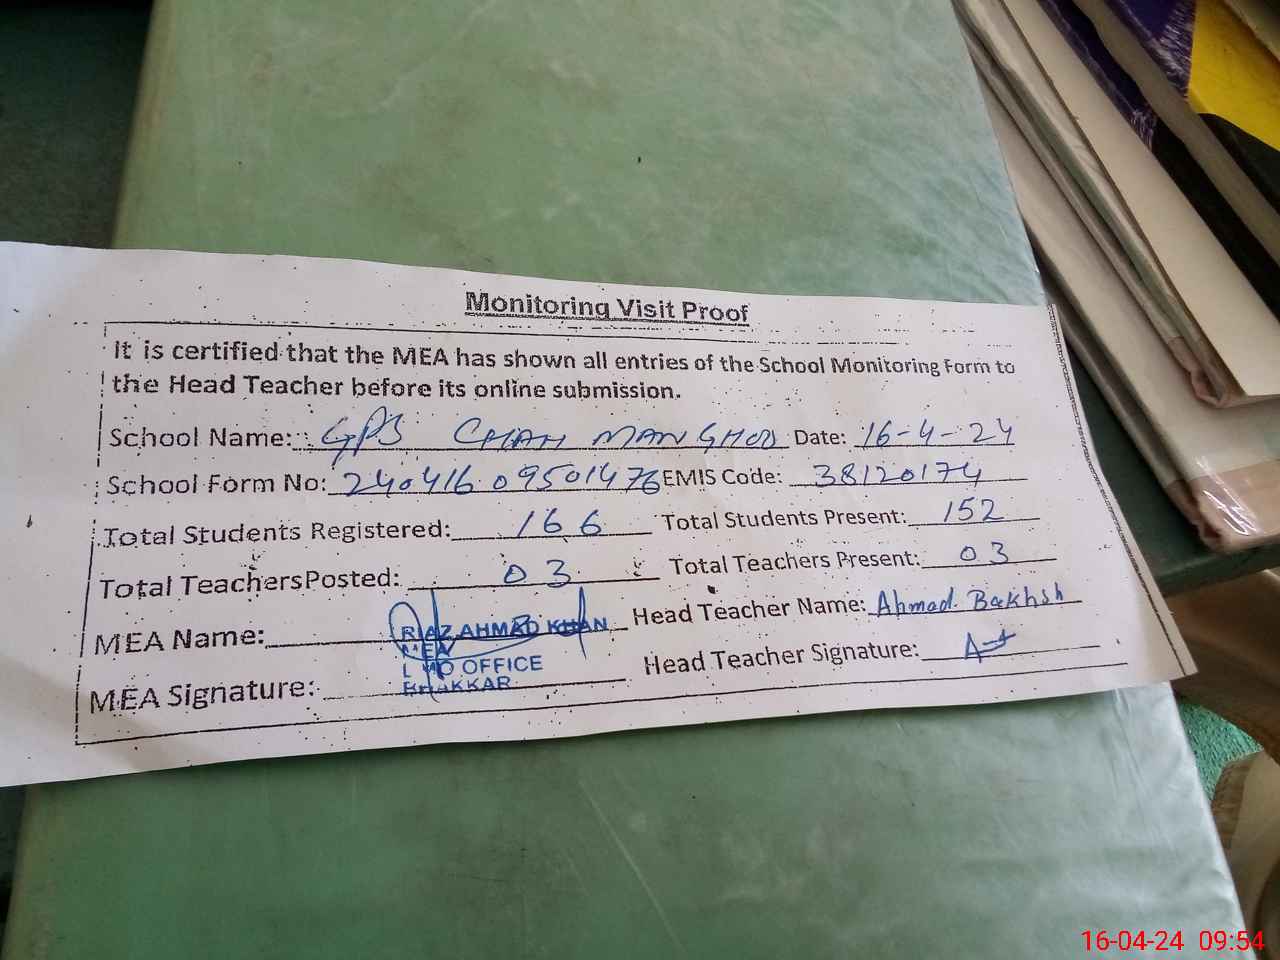 Monitoring Visit Proof
It is certified that the MEA has shown all entries of the School Monitoring Form to
the Head Teacher before its online submission.
School Name: GPS CHAH MANGHOO Date: 16-4-24
School Form No: 24041609501476 EMIS Code: 38120174
Total Students Registered: 166 Total Students Present: 152
Total Teachers Posted: 03 Total Teachers Present: 03
MEA Name: RIAZ AHMAD KHAN Head Teacher Name: Ahmad Bakhsh
MEA
OFFICE
BHAKKAR
MEA Signature: Head Teacher Signature:
16-04-24 09:54